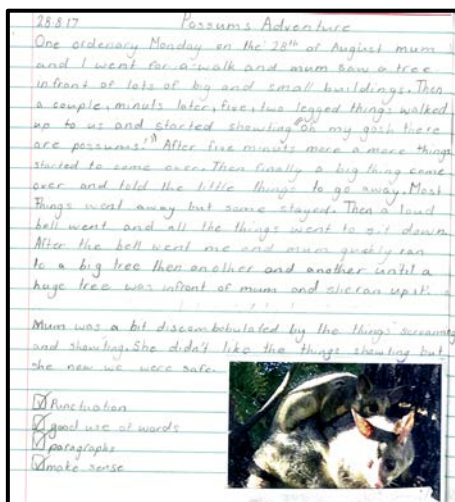 28.8.17 Possums Adventure
One ordenary Monday on the 28th of August mum
and I went for a walk and mum saw a tree
infront of lots of big and small buildings. Then
a couple, minuts later, five, two legged things walked
up to us and started showting "oh my gosh there
are possums!" After five minuts more a more things
started to come over. Then finally a big thing come
over and told the little things to go away. Most
things went away but some stayed. Then a loud
bell went and all the things went to sit down.
After the bell went me and mum quekly ran
to a big tree then another and another until a
huge tree was infront of mum and she ran up it.
Mum was a bit discombobulated by the things screaming
and showting. She didn't like the things showting but
she new we were safe.
Punctuation
good use of words
paragraphs
make sense